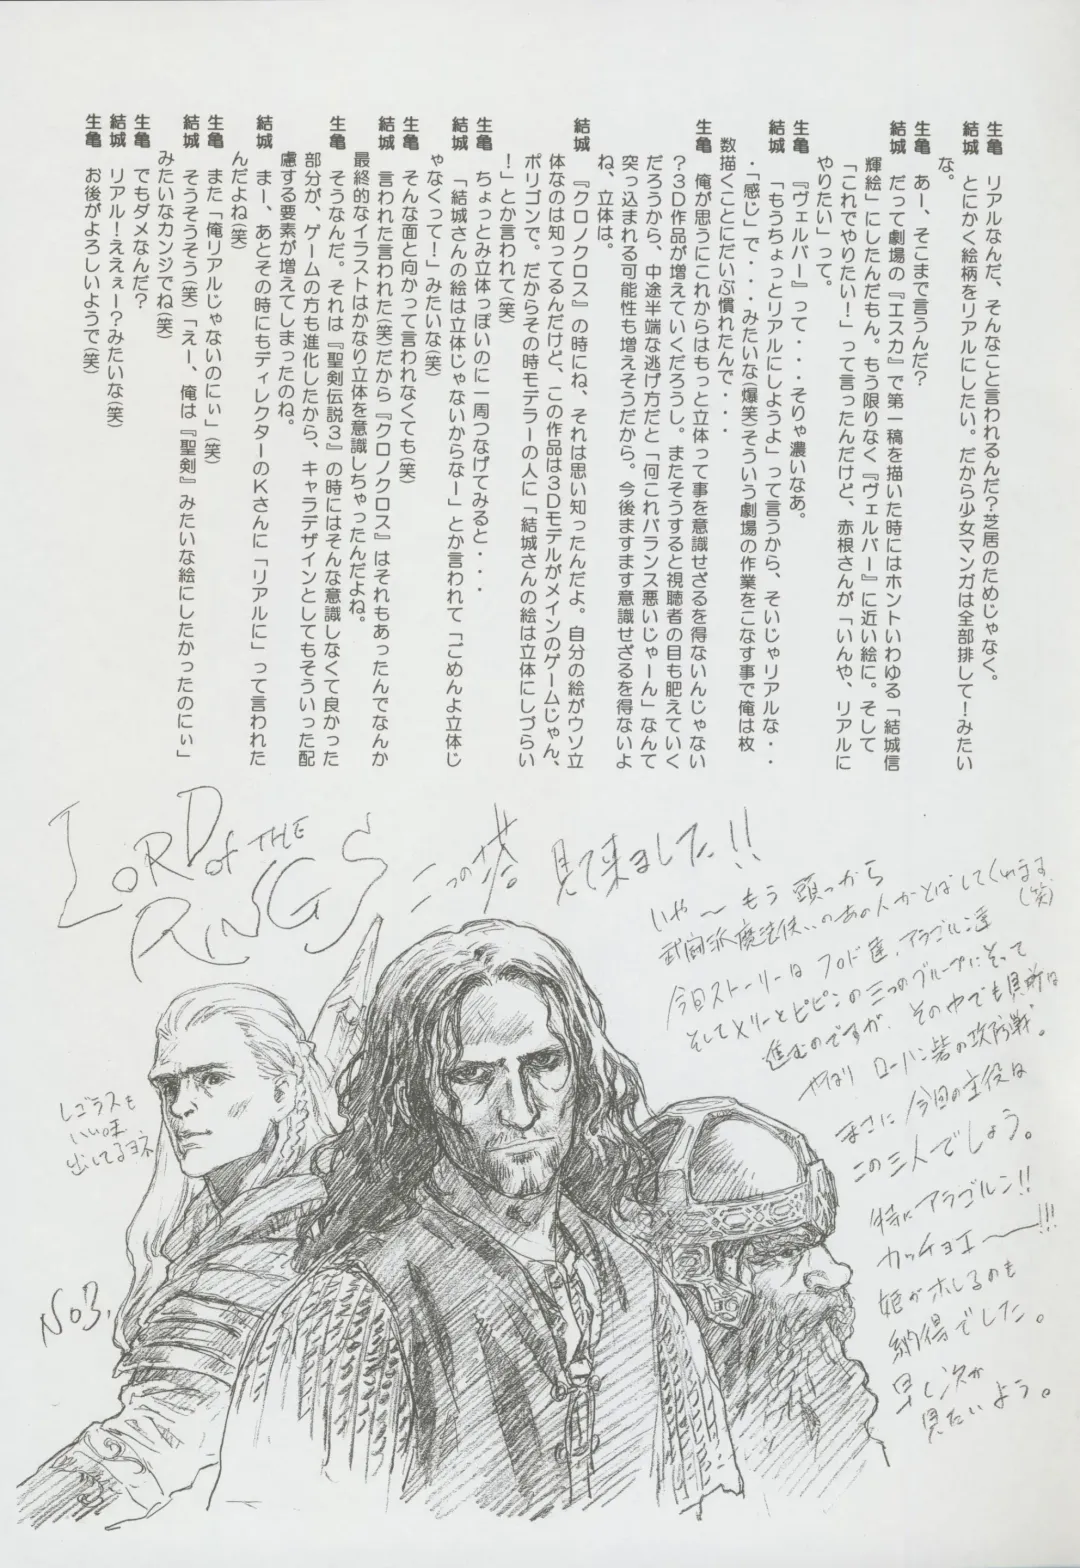 生亀　リアルなんだ、そんなこと言われるんだ？芝居のためじゃなく。
結城　とにかく絵柄をリアルにしたい。だから少女マンガは全部排して！みたい
な。
生亀　あー、そこまで言うんだ？
結城　だって劇場の『エスカ』で第一稿を描いた時にはホントいわゆる「結城信
輝絵」にしたんだもん。もう限りなく『ヴェルバー』に近い絵に。そして
「これでやりたい！」って言ったんだけど、赤根さんが「いんや、リアルに
やりたい」って。
生亀　『ヴェルバー』って・・・そりゃ濃いなあ。
結城　「もうちょっとリアルにしようよ」って言うから、そいじゃリアルな・・
・「感じ」で・・・みたいな(爆笑)そういう劇場の作業をこなす事で俺は枚
数描くことにだいぶ慣れたんで・・・
生亀　俺が思うにこれからはもっと立体って事を意識せざるを得ないんじゃない
？3D作品が増えていくだろうし。またそうすると視聴者の目も肥えていく
だろうから、中途半端な逃げ方だと「何これバランス悪いじゃーん」なんて
突っ込まれる可能性も増えそうだから。今後ますます意識せざるを得ないよ
ね、立体は。
結城　『クロノクロス』の時にね、それは思い知ったんだよ。自分の絵がウソ立
体なのは知ってるんだけど、この作品は3Dモデルがメインのゲームじゃん、
ポリゴンで。だからその時モデラーの人に「結城さんの絵は立体にしづらい
！」とか言われて(笑)
生亀　ちょっとみ立体っぽいのに一周つなげてみると・・・
結城　「結城さんの絵は立体じゃないからなー」とか言われて「ごめんよ立体じ
ゃなくって！」みたいな(笑)
生亀　そんな面と向かって言われなくても(笑)
結城　言われた言われた(笑)だから『クロノクロス』はそれもあったんでなんか
最終的なイラストはかなり立体を意識しちゃったんだよね。
生亀　そうなんだ。それは『聖剣伝説3』の時にはそんな意識しなくて良かった
部分が、ゲームの方も進化したから、キャラデザインとしてもそういった配
慮する要素が増えてしまったのね。
結城　まー、あとその時にもディレクターのKさんに「リアルに」って言われた
んだよね(笑)
生亀　また「俺リアルじゃないのにぃ」(笑)
結城　そうそうそう(笑)「えー、俺は『聖剣』みたいな絵にしたかったのにぃ」
みたいなカンジでね(笑)
生亀　でもダメなんだ？
結城　リアル！ええぇー？みたいな(笑)
生亀　お後がよろしいようで(笑)
LORD of THE
RINGS
二つの塔。見て来ました!!
いや〜もう頭っから
武闘派魔法使いのあの人がとばしてくれます(笑)
今回ストーリーはフロド達、アラゴルン達
そしてメリーとピピンの三つのグループにそって
進むのですが、その中でも見所は
やはりローハン砦の攻防戦。
まさに今回の主役は
この三人でしょう。
特にアラゴルン!!
カッチョエ〜!!!
姫がホレるのも
納得でした。
早く次が
見たいよう。
レゴラスも
いい味
出してるヨネ
No3.